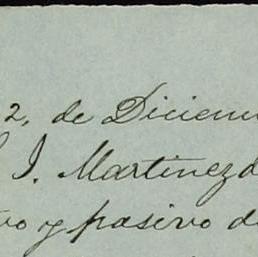 2, de Diciem
I. Martinez d
vo y pasivo de